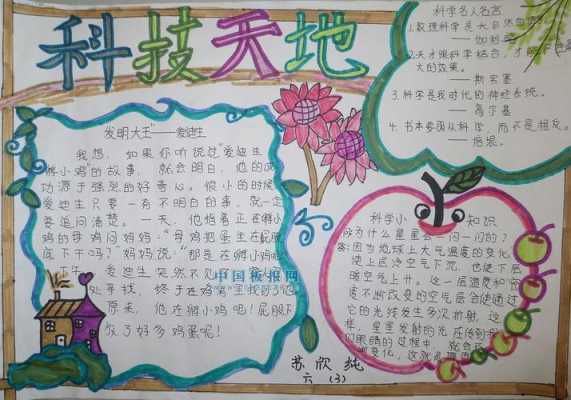 科技天地
发明大王"——爱迪生
我想，如果你听说过"爱迪生
孵小鸡"的故事，就会明白，他的成
功源于强烈的好奇心。很小的时候
爱迪生只要一有不明白的事，就一定
要追问清楚。一天，他指着正在孵小
鸡的母鸡问妈妈："母鸡把蛋坐在屁股
底下干吗？"妈妈说："那是在孵小鸡呢
爱迪生突然不见了
处寻找，终于在鸡窝里找到了他
原来，他在孵小鸡吧！屁股下
放了好多鸡蛋呢！
中国板报网
科学名人名言
1.数理科学是大自然
——伽利略
2.天才跟科学结合，才能
大的效果。
——斯宾塞
3.科学是我时代的神经系统。
——高尔基
4.书本要围从科学，而不是相反。
——培根。
科学小知识
为什么星星会一闪一闪的？
答：因为地球上大气温度的变化，
使上层冷空气下沉，也使下层
暖空气上升。这一层温度和密
度不断改变的空气层会使通过
它的光线发生多次折射，这
样，星星发射的光在传到
们眼睛的过程中，就会
变化，这就是
苏欣纯
六（3）